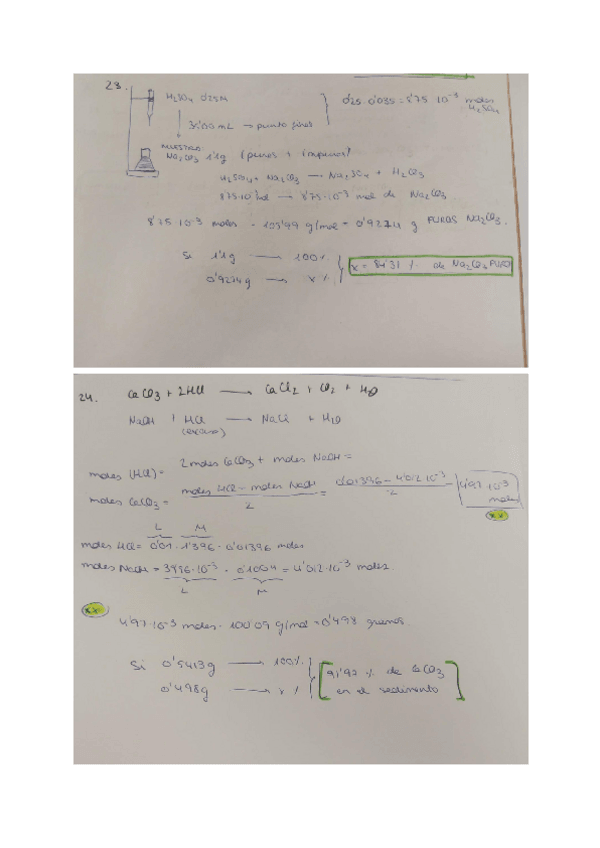 23.
H₂SO₄ 0'25M
0'25·0'035 = 8'75·10⁻³ moles H₂SO₄
35'00 mL → punto final
MUESTRA
Na₂CO₃ 1'1g (puros + impuros)
H₂SO₄ + Na₂CO₃ → Na₂SO₄ + H₂CO₃
8'75·10⁻³mol → 8'75·10⁻³ mol de Na₂CO₃
8'75·10⁻³ moles · 105'99 g/mol = 0'9274 g PUROS Na₂CO₃.
Si 1'1g → 100%
0'9274g → x %
x = 84'31 % de Na₂CO₃ PURO
24. CaCO₃ + 2HCl → CaCl₂ + CO₂ + H₂O
NaOH + HCl → NaCl + H₂O
(exceso)
moles (HCl) = 2 moles CaCO₃ + moles NaOH =
moles CaCO₃ = moles HCl - moles NaOH / 2 = 0'01396 - 4'012·10⁻³ / 2 4'97·10⁻³ moles
xx
L M
moles HCl = 0'01·1'396 = 0'01396 moles
moles NaOH = 39'96·10⁻³ · 0'1004 = 4'012·10⁻³ moles.
L M
xx
4'97·10⁻³ moles · 100'09 g/mol = 0'498 gramos.
Si 0'5413g → 100%
0'498g → x %
91'92 % de CaCO₃
en el sedimento